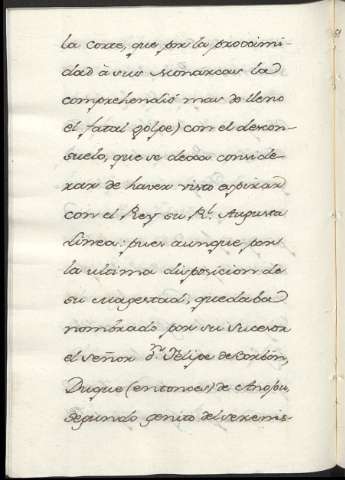 la corte, que por la proximi-
dad à sus Monarcas la
comprehendió mas de lleno
el fatal golpe) con el descon-
suelo, que se dexa conside-
rar de haver visto espirar
con el Rey su Rl. Augusta
Linea: pues aunque por
la ultima disposicion de
su Magestad, quedaba
nombrado por su sucesor
el señor Dn. Felipe de Borbón,
Duque (entonces) de Anjou,
segundo genito del serenis-